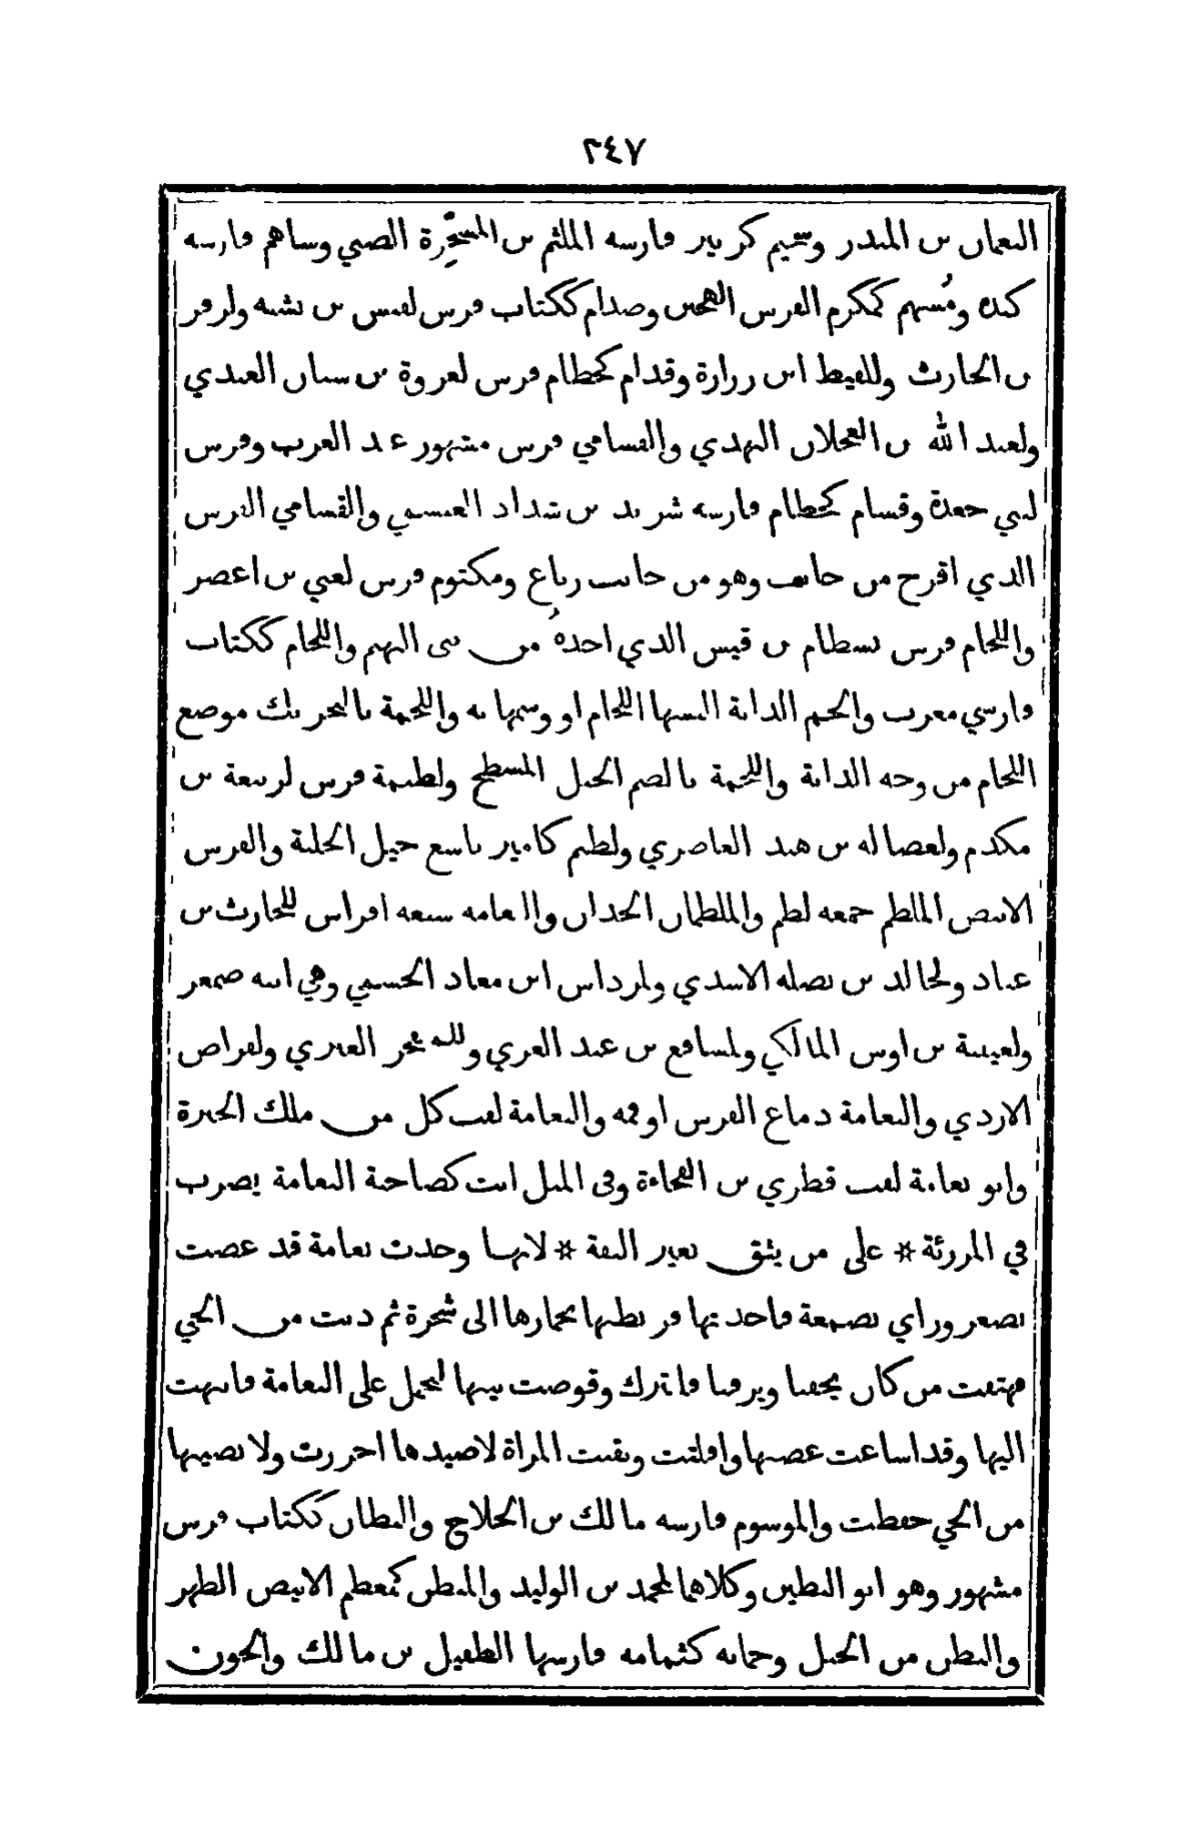 ٢٤٧
النعمان بن المنذر وسحيم كزبير فارسه الملثم بن المسخَّرة الضبي وساهم فارسه
كنده ومُسهم كمكرم الفرس الهجين وصدام ككتاب فرس لقيس بن نشبه ولزفر
بن الحارث وللقيط ابن زرارة وقدام كحطام فرس لعروة بن سنان العبدي
ولعبد الله بن العجلان النهدي والقسامي فرس مشهور عند العرب وفرس
لبني جعدة وقسام كحطام فارسه شريد بن شداد العبسمي والقسامي الفرس
الذي اقرح من جانب وهو من جانب رباع ومكتوم فرس لغني بن اعصر
واللجام فرس بسطام بن قيس الذي اخذهُ من بنى النهم واللجام ككتاب
فارسي معرب والجم الدابة البسها اللجام او وسمها به واللجمة بالتحريك موضع
اللجام من وجه الدابة واللجمة بالضم الجبل المسطح ولطيمة فرس لربيعة بن
مكدم ولعضاله بن هند الغاضري ولطيم كامير تاسع خيل الحلبة والفرس
الابيض الملطم جمعه لطم والملطمان الخدان والنعامه سبعه افراس للحارث بن
عباد ولخالد بن نضله الاسدي ولمرداس ابن معاد الجسمي وهي ابنه صمعر
ولعيينة بن اوس المالكي ولمسافع بن عبد العزي ولله فجر العنزي ولقراض
الازدي والنعامة دماغ الفرس او فمه والنعامة لقب كل من ملك الحيرة
وابو نعامة لقب قطري بن الفجاءة وفى المثل انت كصاحبة النعامة يضرب
في المرزئة * على من يثق بغير الثقة * لانها وجدت نعامة قد غصت
بصعرور اي بصمغة فاخذتها فربطتها بخمارها الى شجرة ثم دنت من الحي
فهتفت من كان يحفنا ويرفنا فليترك وقوضت بيتها لتحمل على النعامة فانتهت
اليها وقد اساغت غصتها وافلتت وبقيت المراة لا صيدها احرزت ولا نصيبها
من الحي حفظت والموسوم فارسه مالك بن الجلاح والبطان ككتاب فرس
مشهور وهو ابو البطين وكلاهما لمحمد بن الوليد والمبطن كمعظم الابيض الظهر
والبطن من الخيل وجمانه كثمامه فارسها الطفيل بن مالك والجون